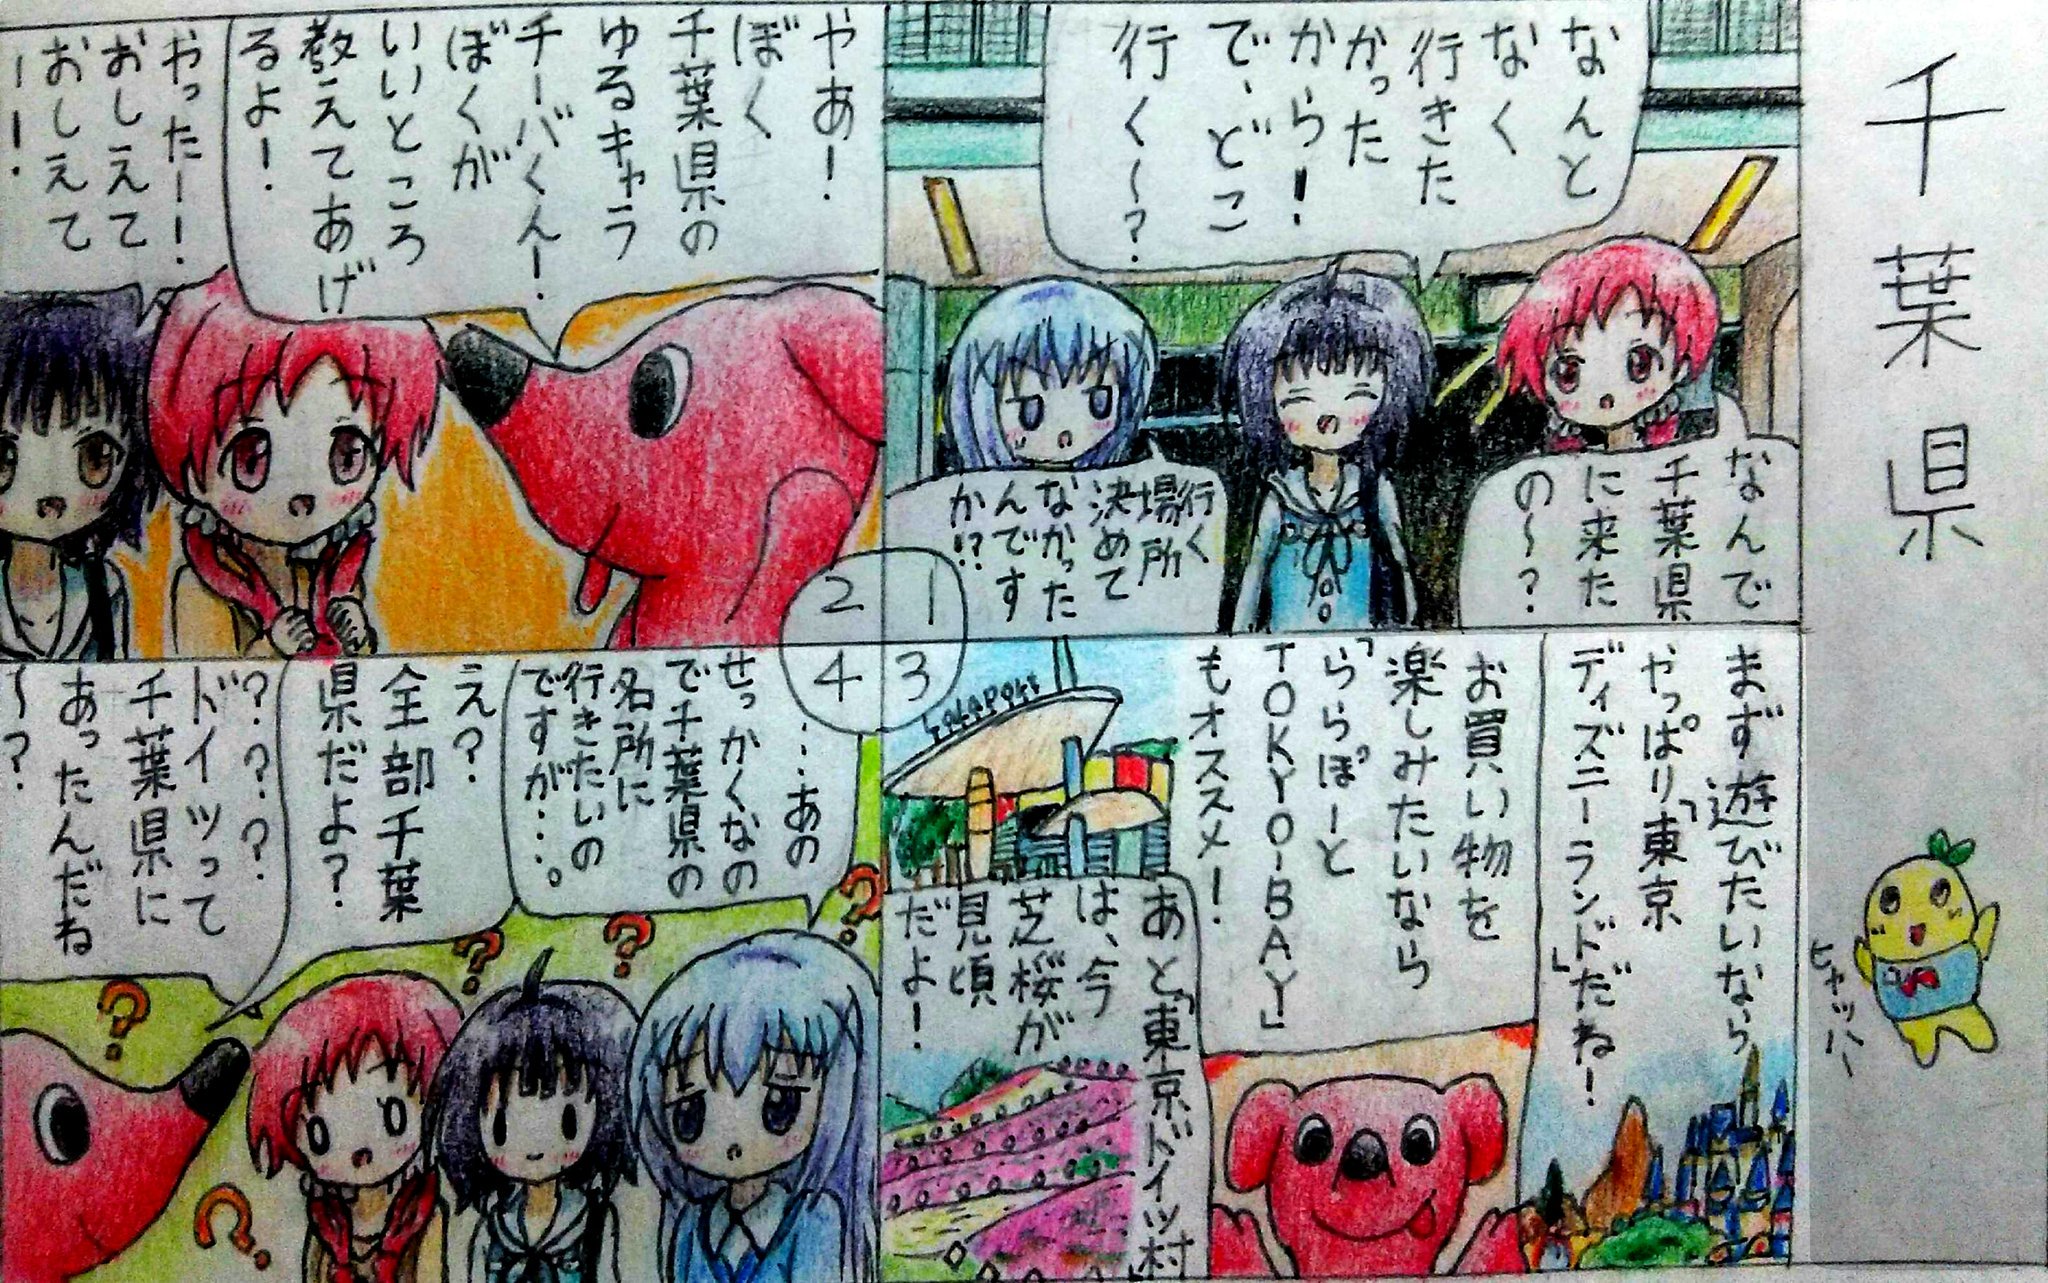 千葉県
ヒャッハー
なんで
千葉県
に来た
の〜?
なんと
なく
行きた
かった
から!
で、どこ
行く〜?
行く
場所
決めて
なかった
んです
か!?
1
やあ!
ぼく
千葉県の
ゆるキャラ
チーバくん!
ぼくが
いいところ
教えてあげ
るよ!
やったー!
おしえて
おしえて
ーー!
2
まず遊びたいなら
やっぱり「東京
ディズニーランド」だね!
お買い物を
楽しみたいなら
「ららぽーと
TOKYO-BAY」
もオススメ!
LaLaPort
あと「東京ドイツ村」
は、今
芝桜が
見頃
だよ!
3
…あの
せっかくなの
で千葉県の
名所に
行きたいの
ですが…。
え?
全部千葉
県だよ?
????
ドイツって
千葉県に
あったんだね
〜?
4